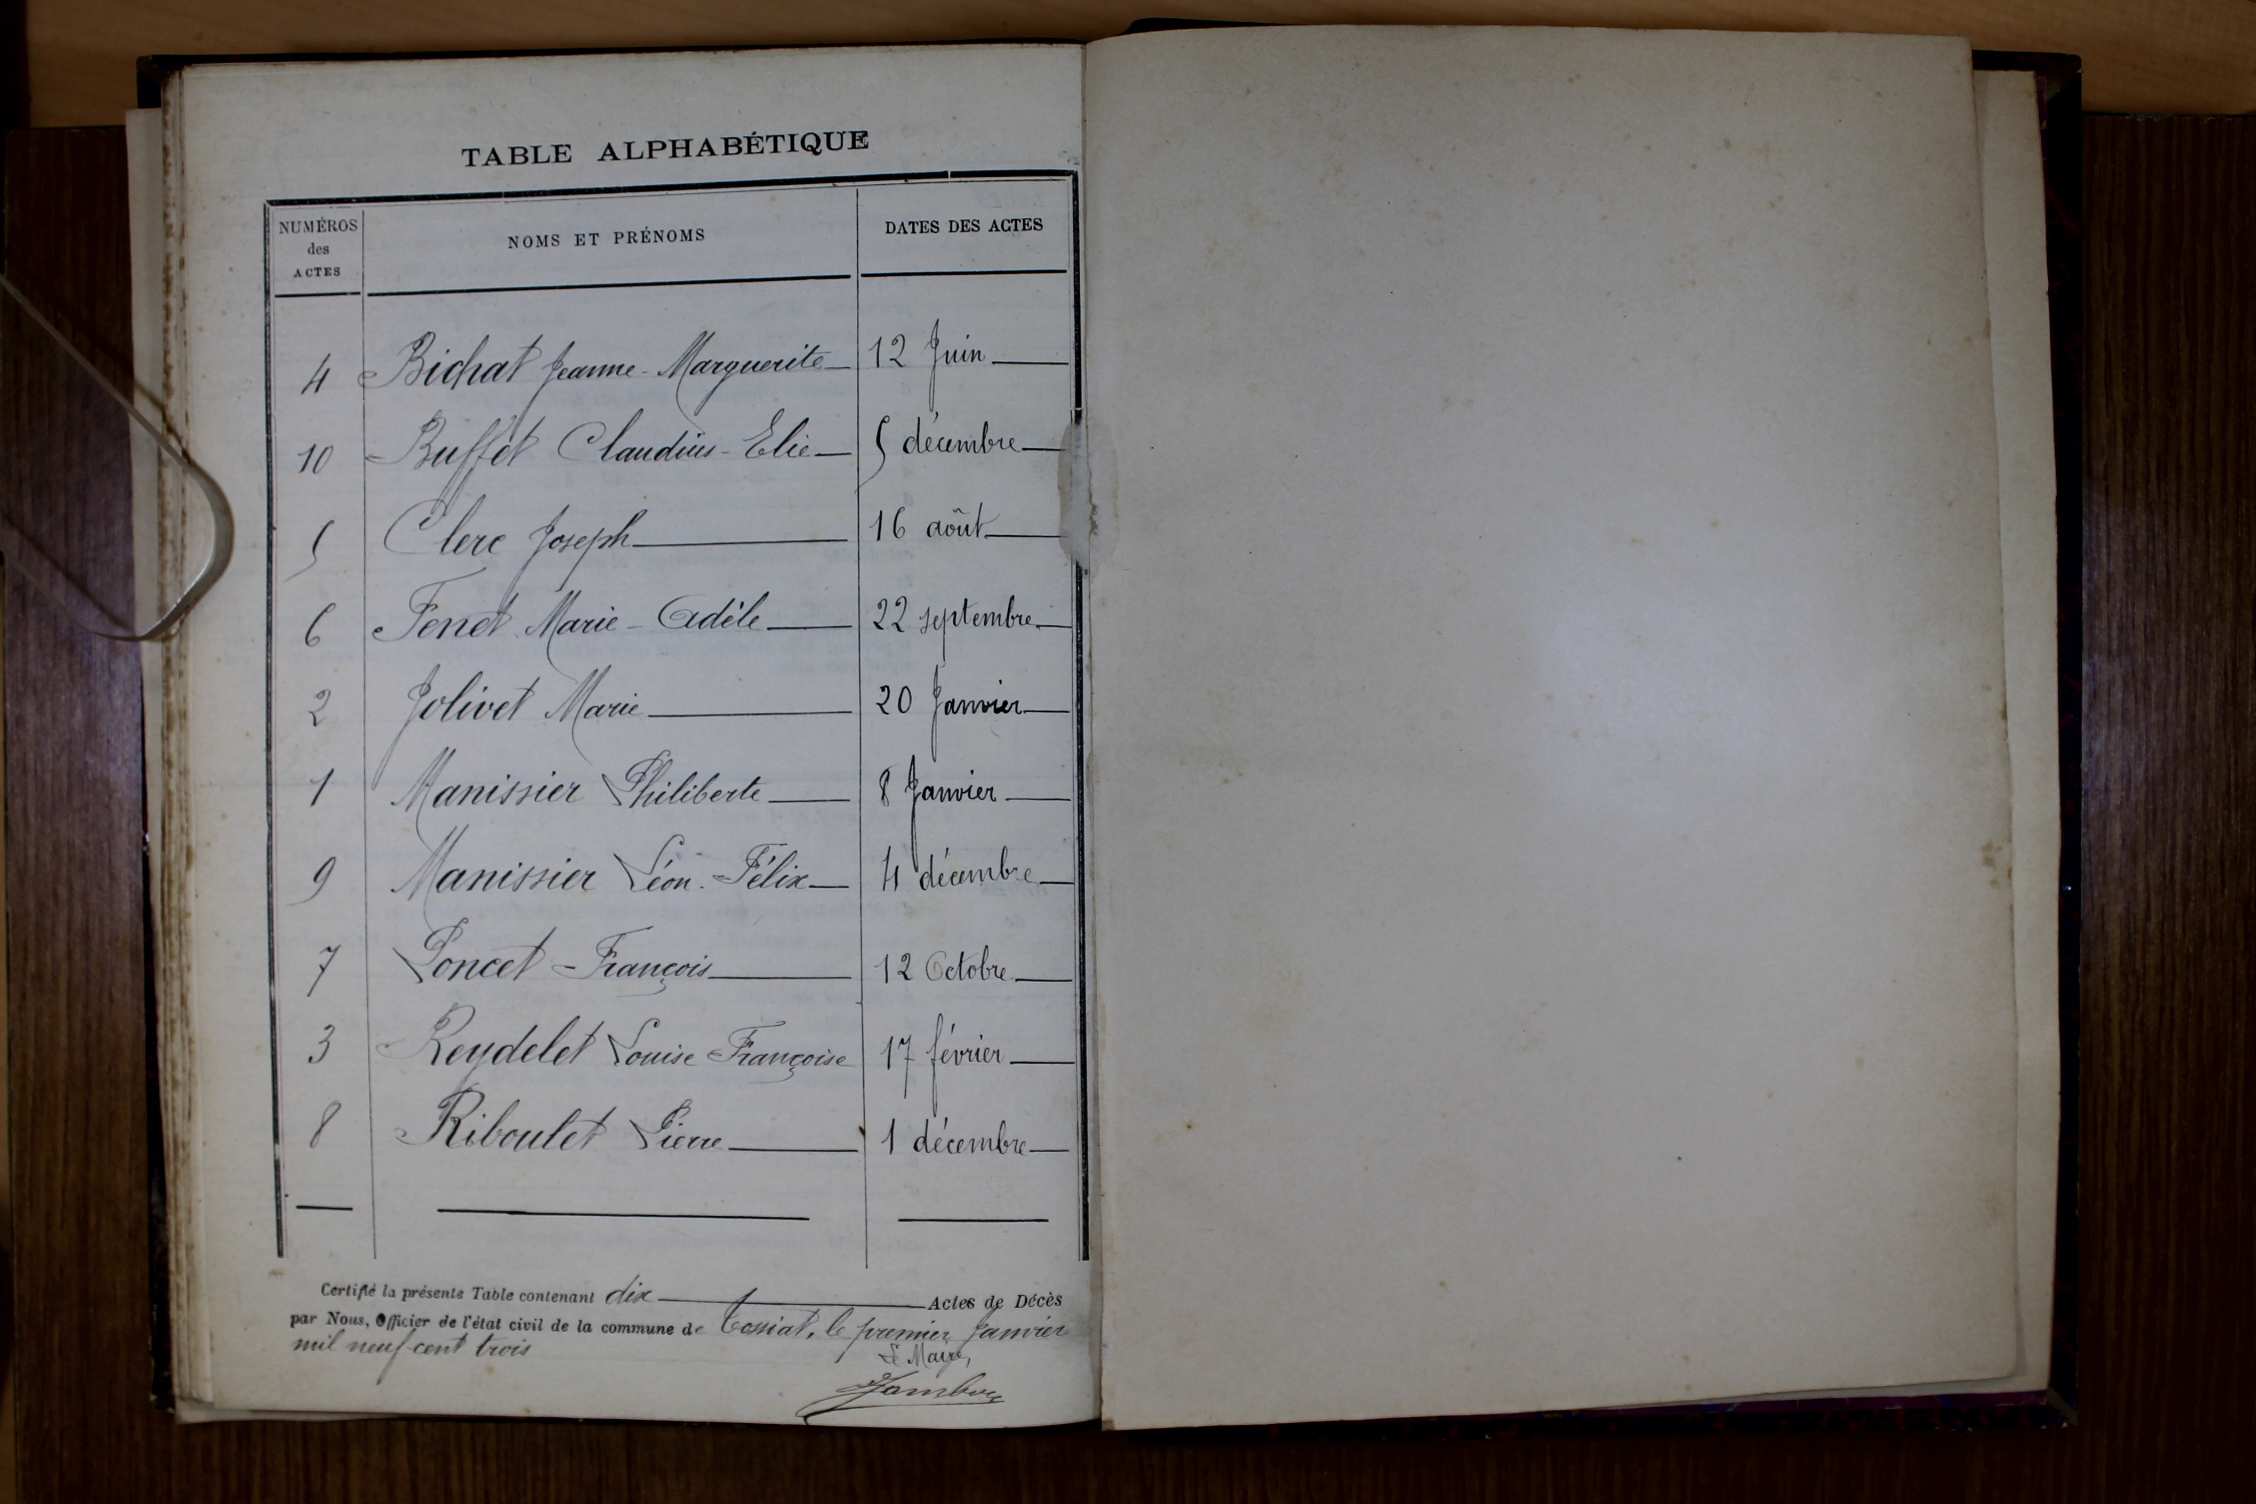 TABLE ALPHABÉTIQUE
NUMÉROS des ACTES NOMS ET PRÉNOMS DATES DES ACTES
4 Bichat Jeanne-Marguerite 12 Juin
10 Buffet Claudius-Elie 5 décembre
5 Clerc Joseph 16 août
6 Fenet Marie-Adèle 22 septembre
2 Jolivet Marie 20 Janvier
1 Manissier Philiberte 8 Janvier
9 Manissier Léon-Félix 4 décembre
7 Poncet-François 12 Octobre
3 Reydelet Louise Françoise 17 février
8 Riboulet Pierre 1 décembre
Certifié la présente Table contenant dix Actes de Décès
par Nous, Officier de l'état civil de la commune de Tossiat, le premier Janvier
mil neuf cent trois
Le Maire,